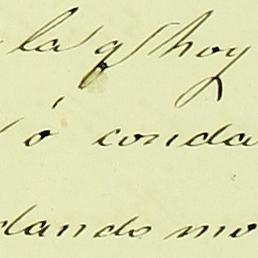 la q hoy
ó conda
dando mo